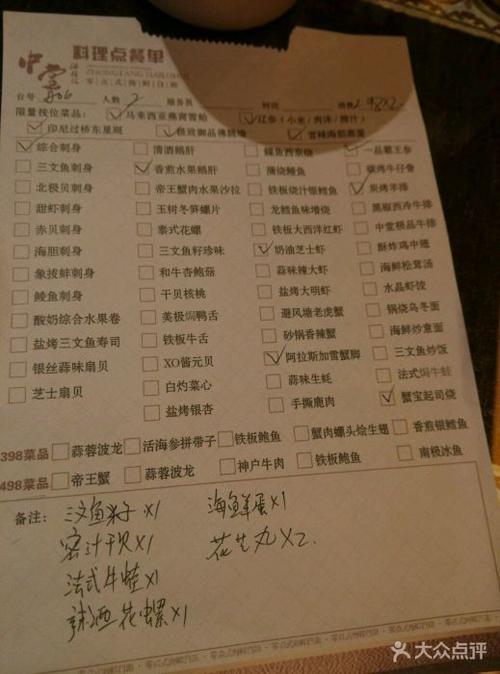 料理点餐单
中堂
台号 人数 2 服务员 时间
限量按位菜品： ✓马来西亚燕窝雪蛤 ✓辽参（小米/肉沫/鲍汁）
✓印尼过桥东星斑 ✓极致御品佛跳墙 ✓
✓综合刺身 □清酒鹅肝 □银鱼西京烧 ✓一品霸王参
□三文鱼刺身 ✓香煎水果鹅肝 □蒲烧鳗鱼 □碳烤牛仔骨
□北极贝刺身 □帝王蟹肉水果沙拉 □铁板烧汁银鳕鱼 ✓炭烤羊排
□甜虾刺身 □玉树冬笋螺片 □龙鳕鱼味增烧 □黑椒西冷牛排
□赤贝刺身 □泰式花螺 □铁板大西洋红虾 □中堂极品牛排
□海胆刺身 □三文鱼籽珍味 ✓奶油芝士虾 □酥炸鸡中翅
□象拔蚌刺身 □和牛杏鲍菇 □蒜味辣大虾 □海鲜松茸汤
□鲮鱼刺身 □干贝核桃 □盐烤大明虾 □水晶虾饺
□酸奶综合水果卷 □美极焗鸭舌 □避风塘老虎蟹 □锅烧乌冬面
□盐烤三文鱼寿司 □铁板牛舌 □砂锅香辣蟹 □海鲜炒意面
□银丝蒜味扇贝 □XO酱元贝 ✓阿拉斯加雪蟹脚 □三文鱼炒饭
□芝士扇贝 □白灼菜心 □蒜味生蚝 □法式焗牛蛙
□盐烤银杏 □手撕鹿肉 ✓蟹宝起司烧
398菜品 □蒜蓉波龙 □活海参拼带子 □铁板鲍鱼 □蟹肉螺头烩生翅 □香煎银鳕鱼
498菜品 □帝王蟹 □蒜蓉波龙 □神户牛肉 □铁板鲍鱼 □南极冰鱼
备注： 三文鱼籽 x1 海鲜蛋x1
密汁干贝x1 花生丸x2.
法式牛蛙x1
辣酒花螺x1
大众点评